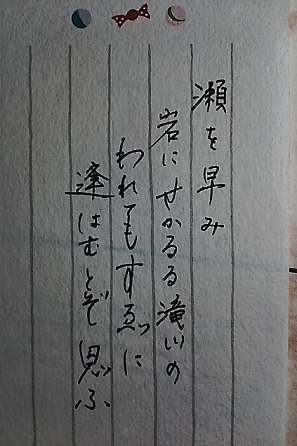 瀬を早み
岩にせかるる滝川の
われてもすゑに
逢はむとぞ思ふ